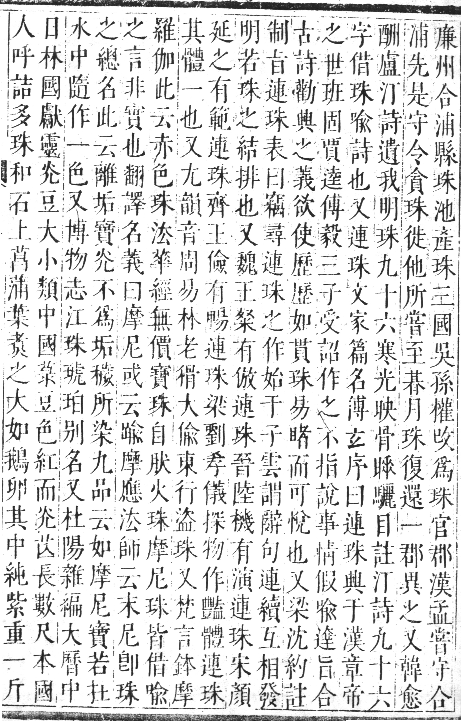 廉州合浦縣珠池產珠三國吳孫權攺爲珠官郡漢孟嘗守合
浦先是守令貪珠徙他所嘗至暮月珠復還一郡異之又韓愈
酬盧汀詩遺我明珠九十六寒光映骨睡驪目註汀詩九十六
字借珠喻詩也又連珠文家篇名傅玄序曰連珠興于漢章帝
之世班固賈逵傅毅三子受詔作之不指說事情假喻達旨合
古詩勸興之義欲使歷歷如貫珠易睹而可悅也又梁沈約註
制旨連珠表曰竊尋連珠之作始于子雲謂辭句連續互相發
明若珠之結排也又魏王粲有倣連珠晉陸機有演連珠宋顏
延之有範連珠齊王儉有暢連珠梁劉孝儀探物作豔體連珠
其體一也又尤韻音周易林老猾大偷東行盜珠又梵言鉢摩
羅伽此云赤色珠法華經無價寶珠自肤火珠摩尼珠皆借喻
之言非實也翻譯名義曰摩尼或云踰摩應法師云末尼卽珠
之總名此云離垢寶光不爲垢穢所染九品云如摩尼寶若在
水中隨作一色又博物志江珠琥珀別名又杜陽雜編大曆中
日林國獻靈光豆大小類中國菉豆色紅而光芒長數尺本國
人呼詰多珠和石上菖蒲葉煑之大如鵝卵其中純紫重一斤